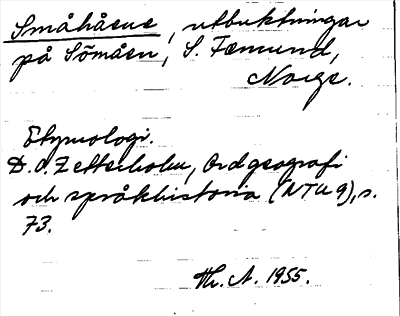 Småhåsuе, utbuktningar
på Sömåsn, S. Fæmund,
Norge.
Etymologi.
D. O. Zetterholm, Ordgeografi
och språkhistoria (NTU 9), s.
73.
Th. A. 1955.